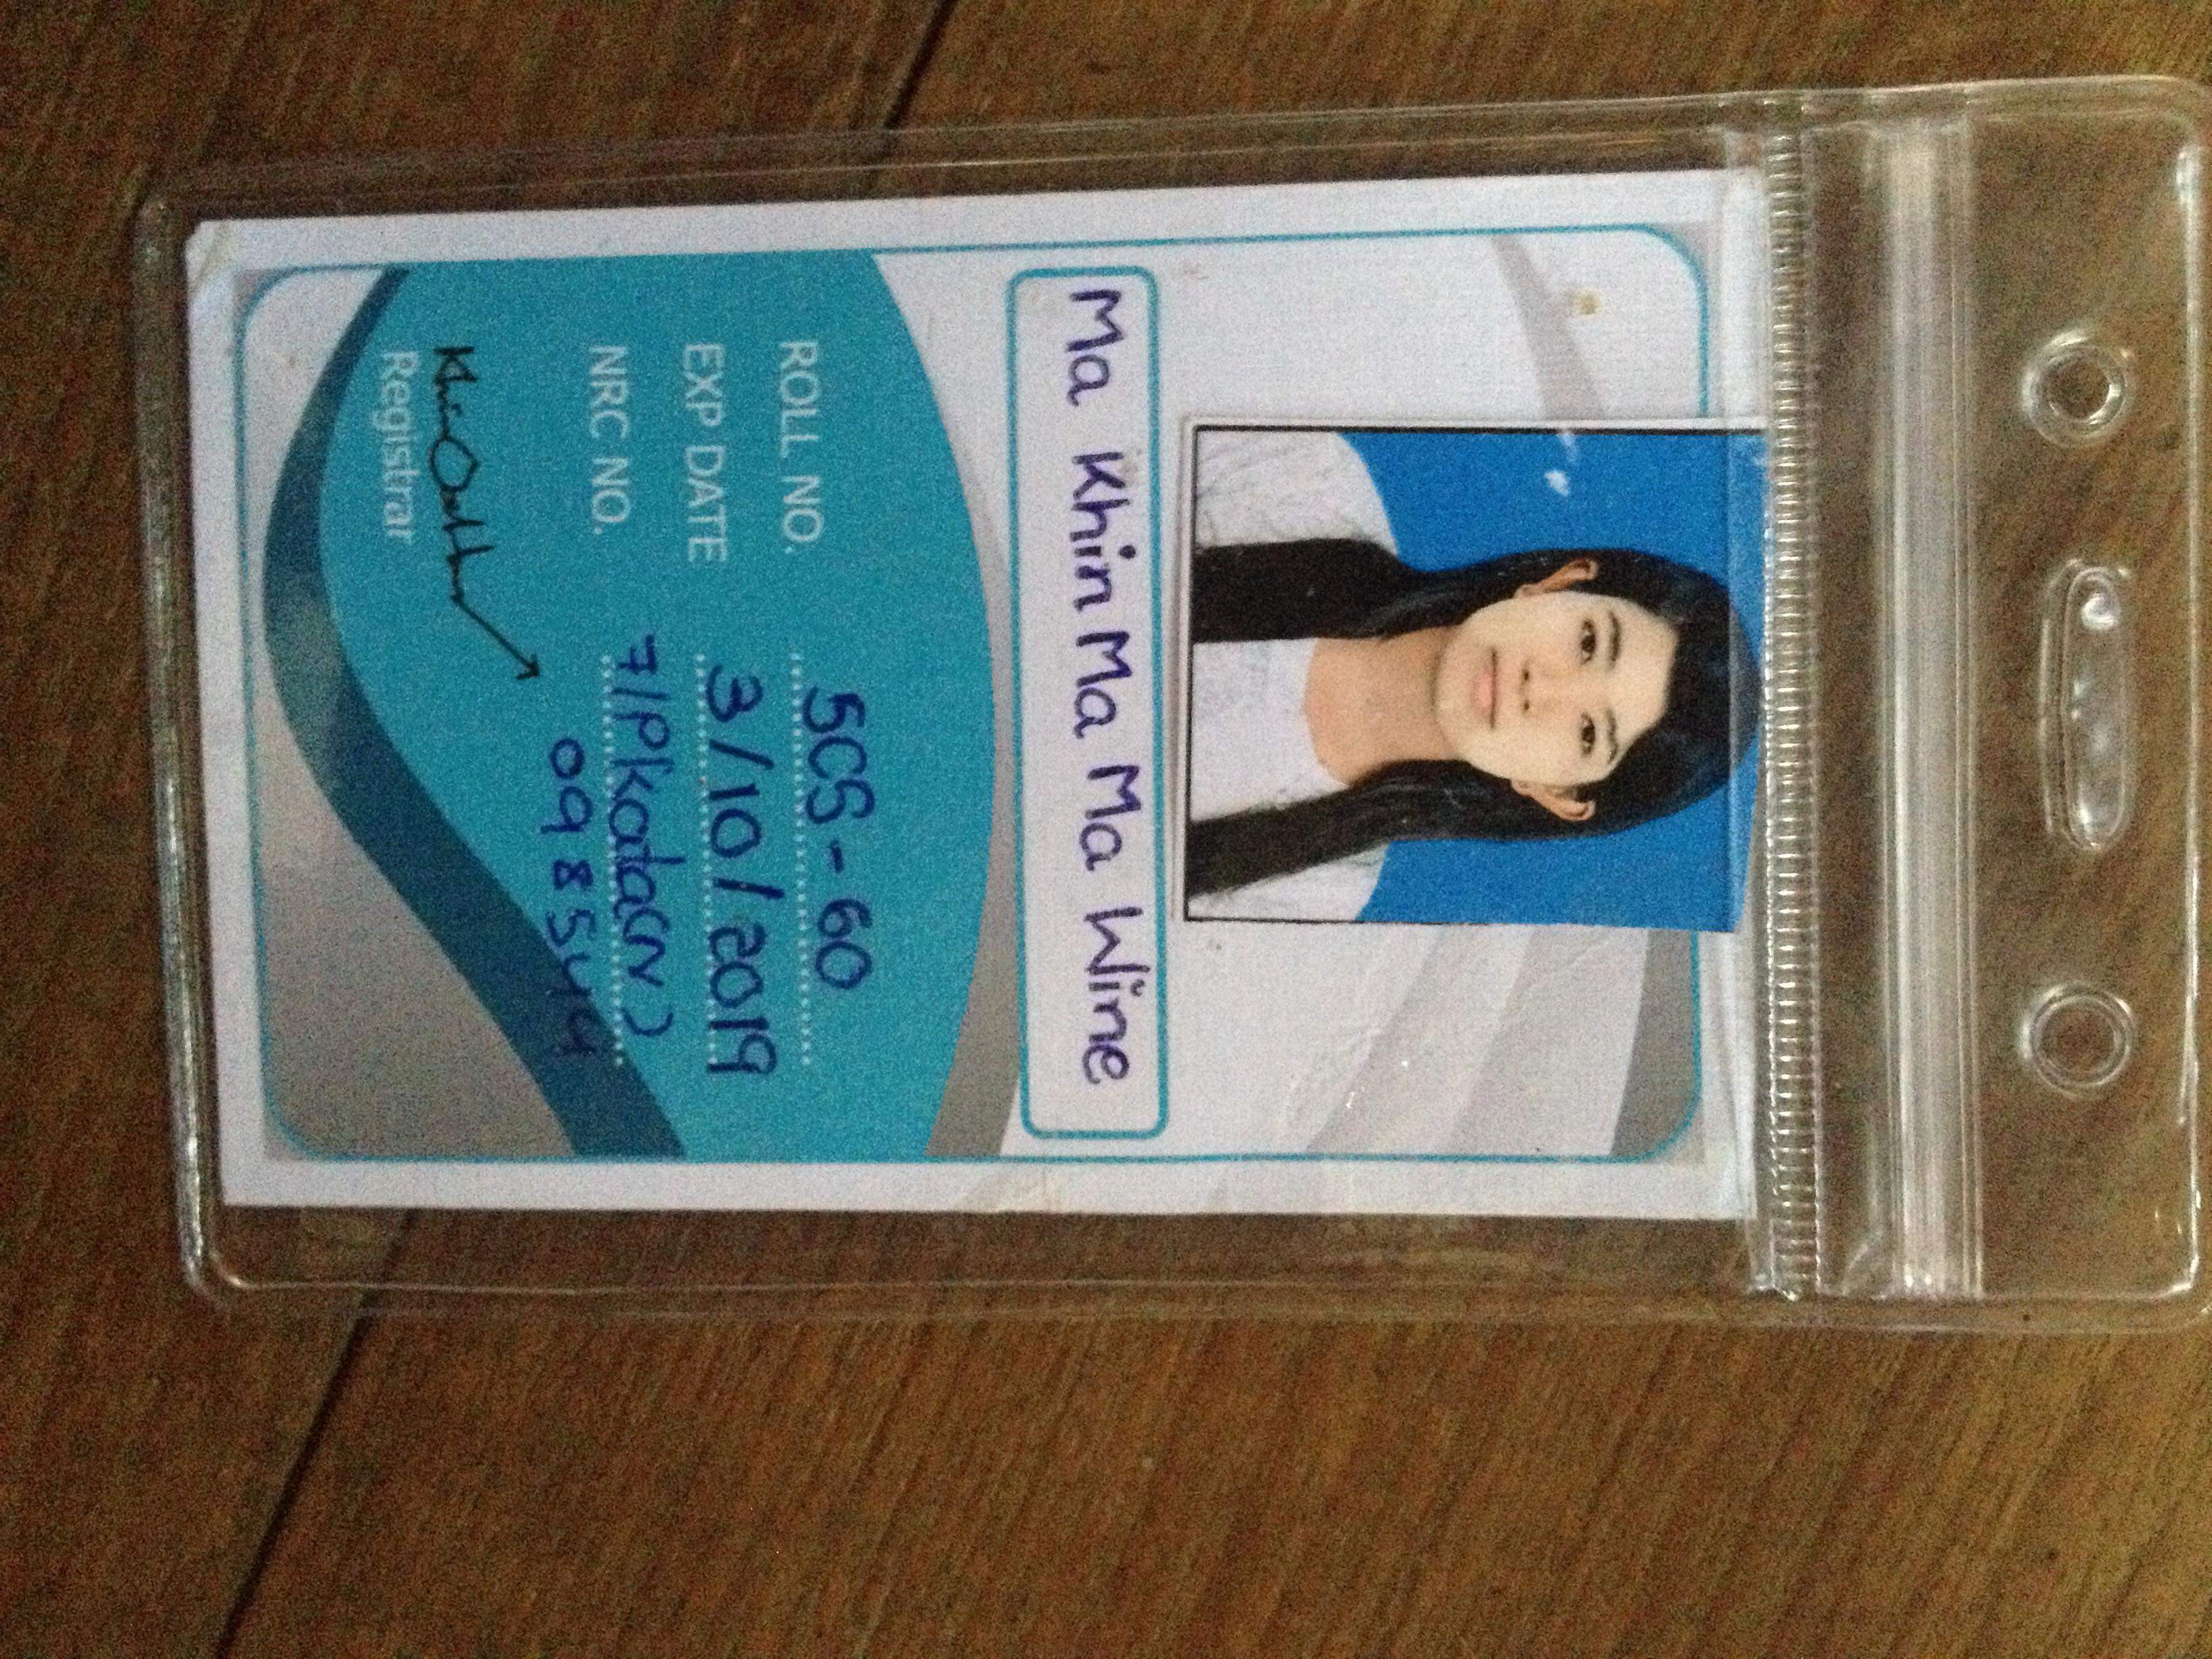 Ma Khin Ma Ma Ma Wine
ROLL NO. 5CS-60
EXP DATE 3/10/2019
NRC NO. 7/Pkata(N)
098544
Registrar